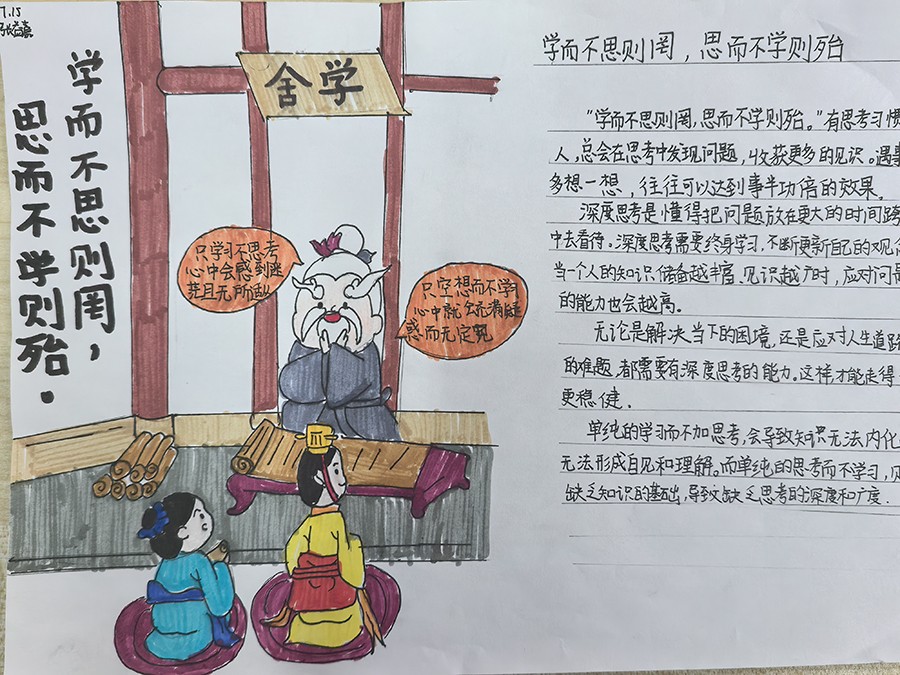 7.15
学而不思则罔，
思而不学则殆.
舍学
只学习不思考
心中会感到迷
茫且无所适从
只空想而不学
心中就会充满疑
惑而无定见
学而不思则罔，思而不学则殆
"学而不思则罔,思而不学则殆。"有思考习惯
人,总会在思考中发现问题,收获更多的见识。遇事
多想一想，往往可以达到事半功倍的效果.
深度思考是懂得把问题放在更大的时间跨
中去看待。深度思考需要终身学习,不断更新自己的观念
当一个人的知识储备越丰富、见识越广时,应对问题
的能力也会越高。
无论是解决当下的困境,还是应对人生道路
的难题,都需要有深度思考的能力。这样才能走得
更稳健.
单纯的学习而不加思考,会导致知识无法内化
无法形成自见和理解.而单纯的思考而不学习,
缺乏知识的基础,导致缺乏思考的深度和广度.